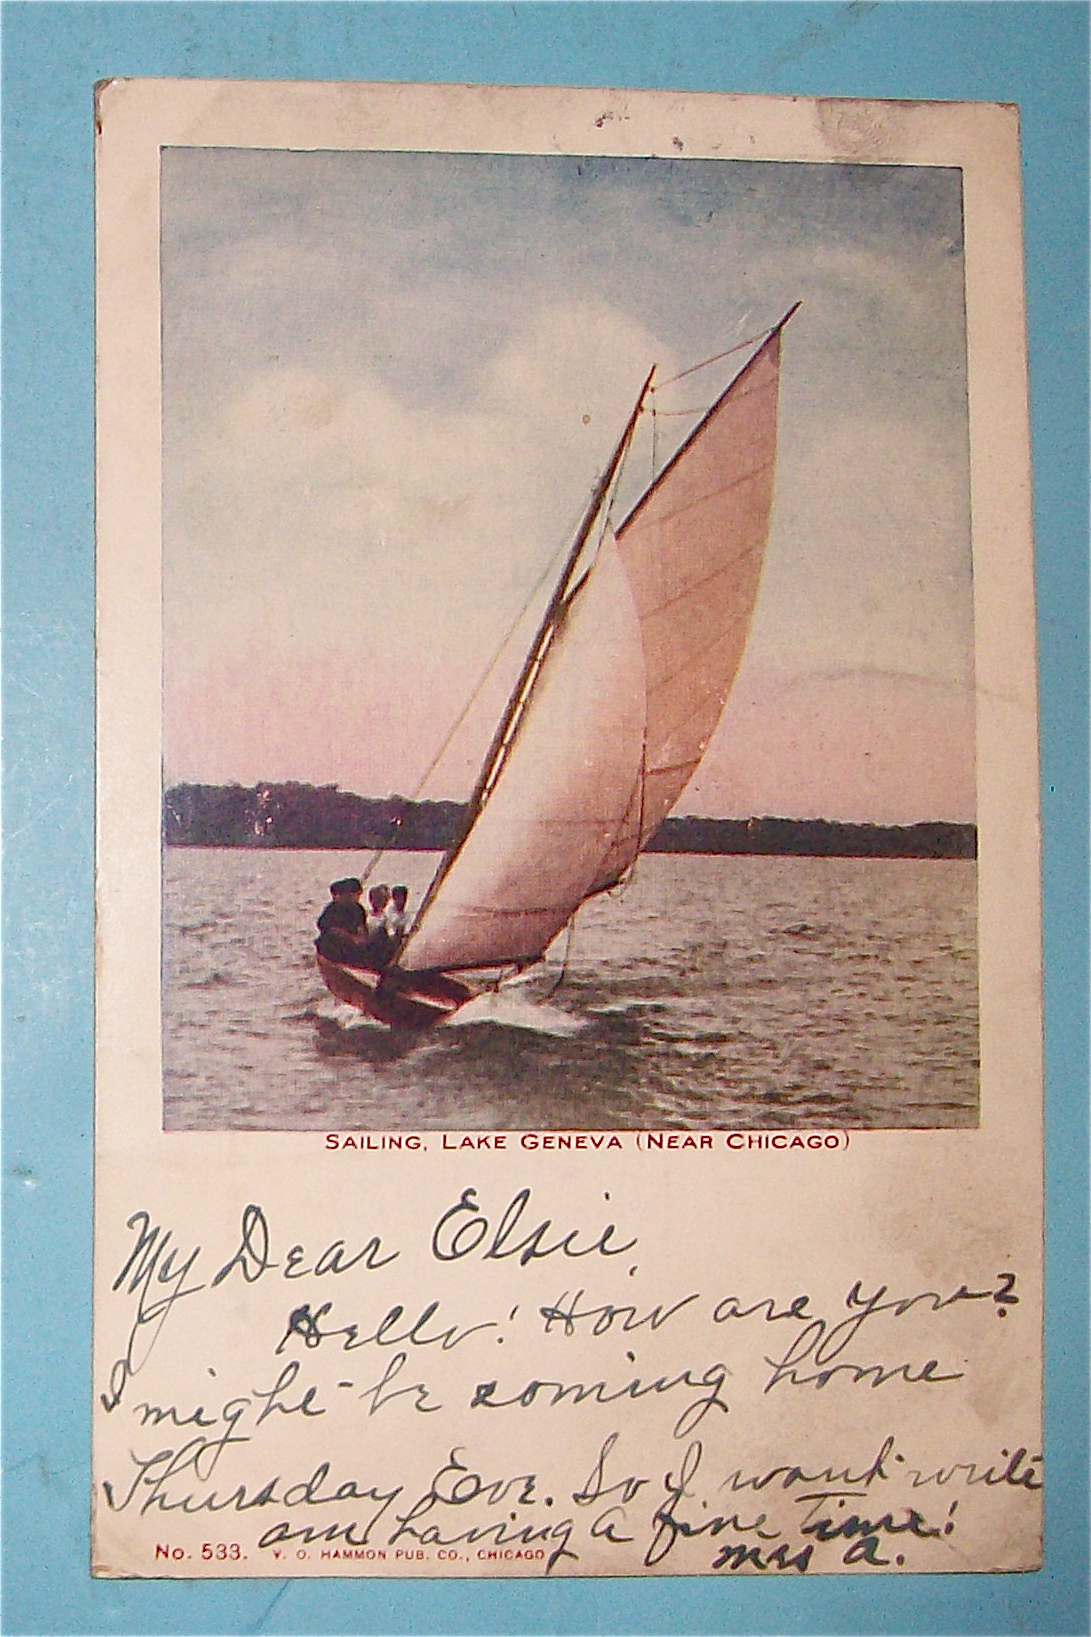 SAILING, LAKE GENEVA (NEAR CHICAGO)
My Dear Elsie,
Hello! How are you?
I might be coming home
Thursday Eve. So I wont write
am having a fine time!
Mrs A.
No. 533. V. O. HAMMON PUB. CO., CHICAGO